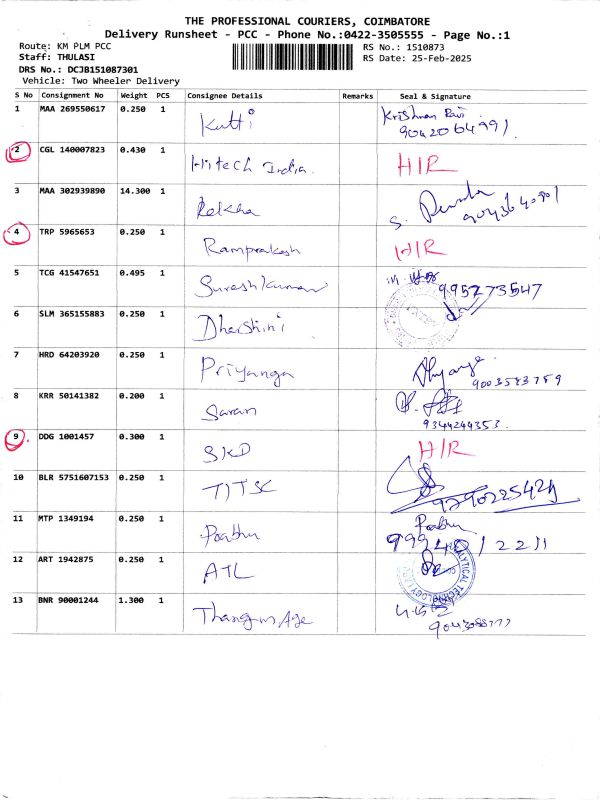 THE PROFESSIONAL COURIERS, COIMBATORE
Delivery Runsheet - PCC - Phone No.:0422-3505555 - Page No.:1
Route: KM PLM PCC
Staff: THULASI
DRS No.: DCJB151087301
Vehicle: Two Wheeler Delivery
RS No.: 1510873
RS Date: 25-Feb-2025
S No Consignment No Weight PCS Consignee Details Remarks Seal & Signature
1 MAA 269550617 0.250 1 Kutti Krishnan Ravi
9042064991
2 CGL 140007823 0.430 1 Hitech India. H/R
3 MAA 302939890 14.300 1 Rekha S.
4 TRP 5965653 0.250 1 Ramprakash H/R
5 TCG 41547651 0.495 1 Sureshkumar 995273547
6 SLM 365155883 0.250 1 Dharshini
7 HRD 64203920 0.250 1 Priyanga
9003583759
8 KRR 50141382 0.200 1 Saran
9344244353.
9 DDG 1001457 0.300 1 SKD H/R
10 BLR 5751607153 0.250 1 TITSC
9790225424
11 MTP 1349194 0.250 1 Prabhu Prabhu
9994012211
12 ART 1942875 0.250 1 ATL
13 BNR 90001244 1.300 1